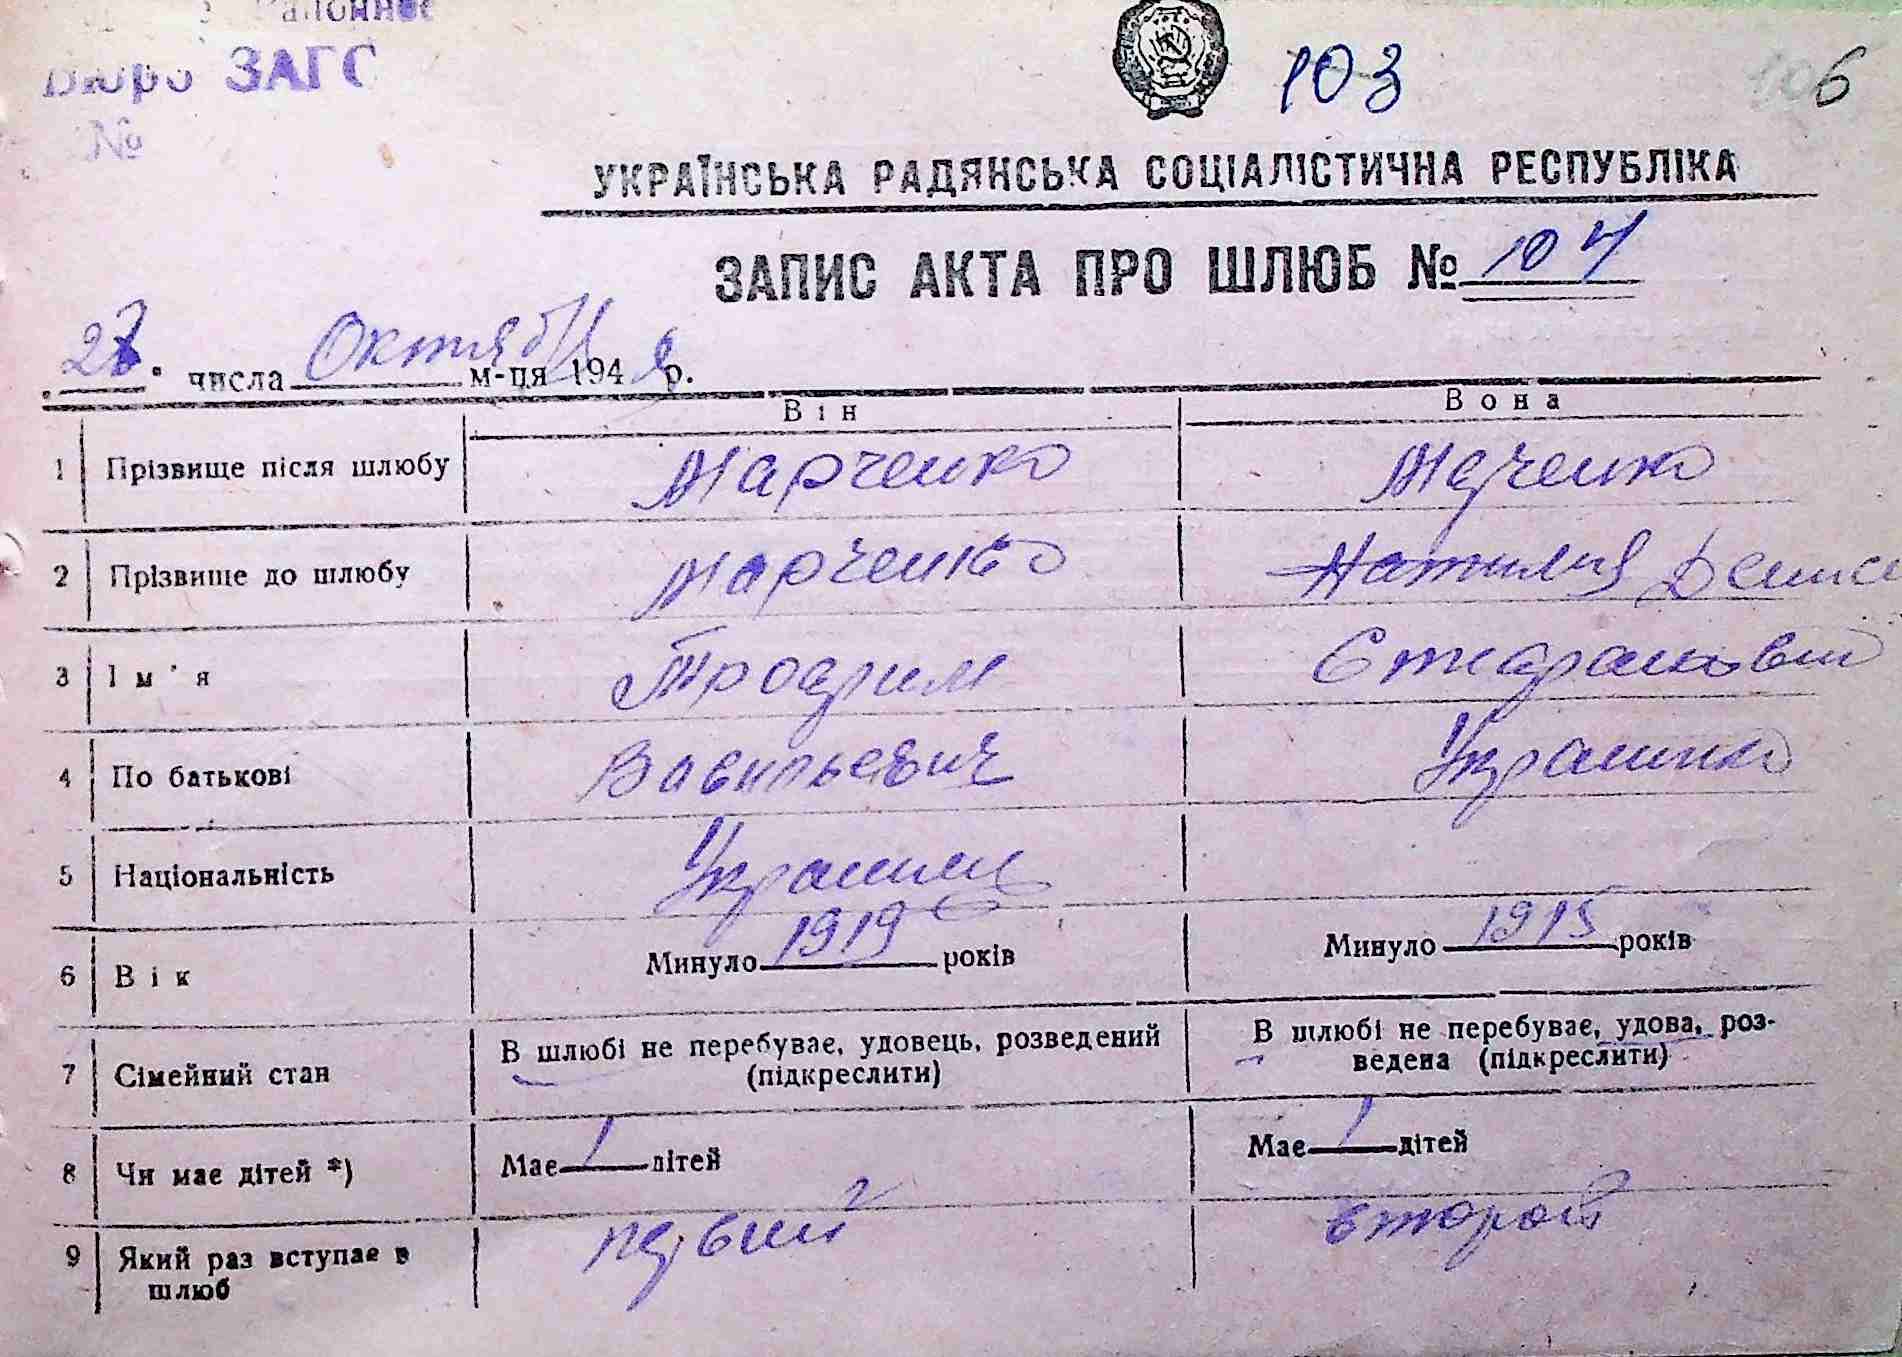 Районное
Бюро ЗАГС
№
103
106
УКРАЇНСЬКА РАДЯНСЬКА СОЦІАЛІСТИЧНА РЕСПУБЛІКА
ЗАПИС АКТА ПРО ШЛЮБ № 104
числа Октября м-ця 194 р.
Він Вона
1 Прізвище після шлюбу Марченко Марченко
2 Прізвище до шлюбу Марченко Наталия Денисо
3 Ім'я Трофим
4 По батькові Васильевич Украинка
5 Національність Украинец
6 Вік Минуло 1919 років Минуло 1915 років
7 Сімейний стан В шлюбі не перебуває, удовець, розведений (підкреслити) В шлюбі не перебуває, удова, роз-
ведена (підкреслити)
8 Чи має дітей *) Має 1 дітей Має 1 дітей
9 Який раз вступає в первый второй
шлюб